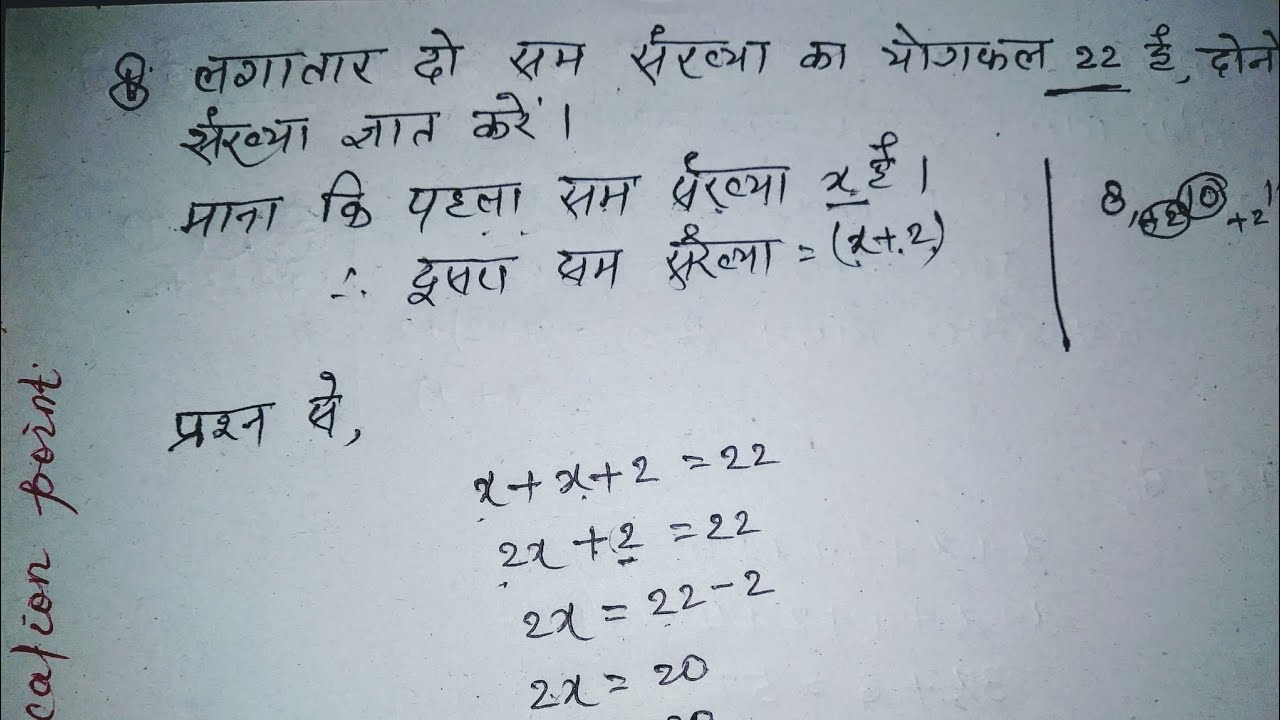 लगातार दो सम संख्या का योगफल 22 है, दोनो
संख्या ज्ञात करें।
माना कि पहला सम संख्या x है।
∴ दूसरा सम संख्या = (x+2)
8, +2 10 +2 1
प्रश्न से,
x+x+2 = 22
2x+2 = 22
2x = 22-2
2x = 20
cation point.